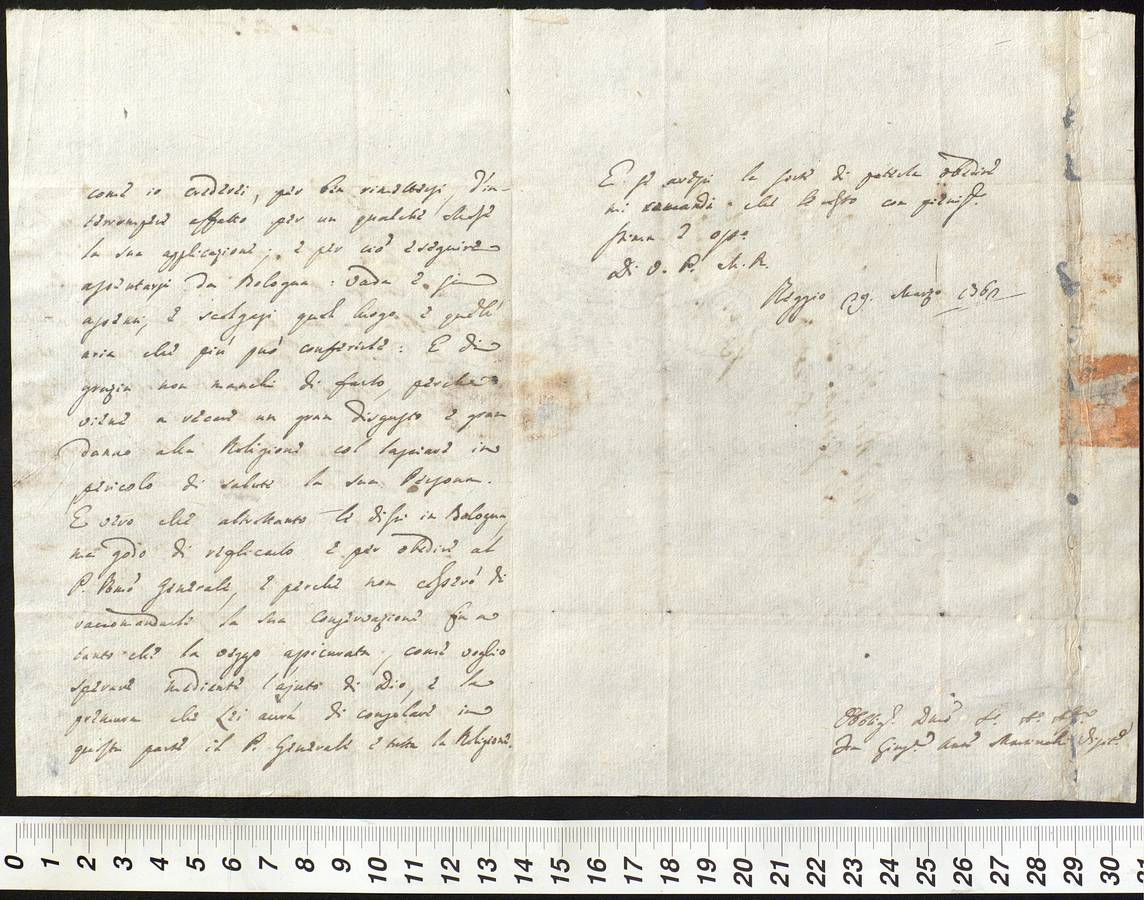 come io crederei, per ben rimettersi, d'in-
terrompere affatto per un qualche Mese
la sua applicazione; e per ciò eseguire
assentarsi da Bologna: Vada e si
assenti, e scelgasi quel luogo e quell'
aria che più può conferirle: E di
grazia non manchi di farlo, perche
viene a recare un gran disgusto e gran
danno alla Religione col lasciare in
pericolo di salute la sua Persona.
E vero che altrettanto le dissi in Bologna,
ma godo di replicarlo e per obedire al
P. Rmo Generale, e perche non cesserò di
raccomandarle la sua conservazione fin a
tanto che la vegga assicurata, come voglio
sperare mediante l'ajuto di Dio, e la
premura che Lei avrà di consolare in
questa parte il P. Generale e tutta la Religione.
E se avessi la sorte di poterla obedire
mi comandi che le resto con pienis.
stima e osso
Di V. P. M. R.
Reggio 29. Marzo 1761
Obblig. Devo Se. 
Fra Giuse Anto
0 1 2 3 4 5 6 7 8 9 10 11 12 13 14 15 16 17 18 19 20 21 22 23 24 25 26 27 28 29 30